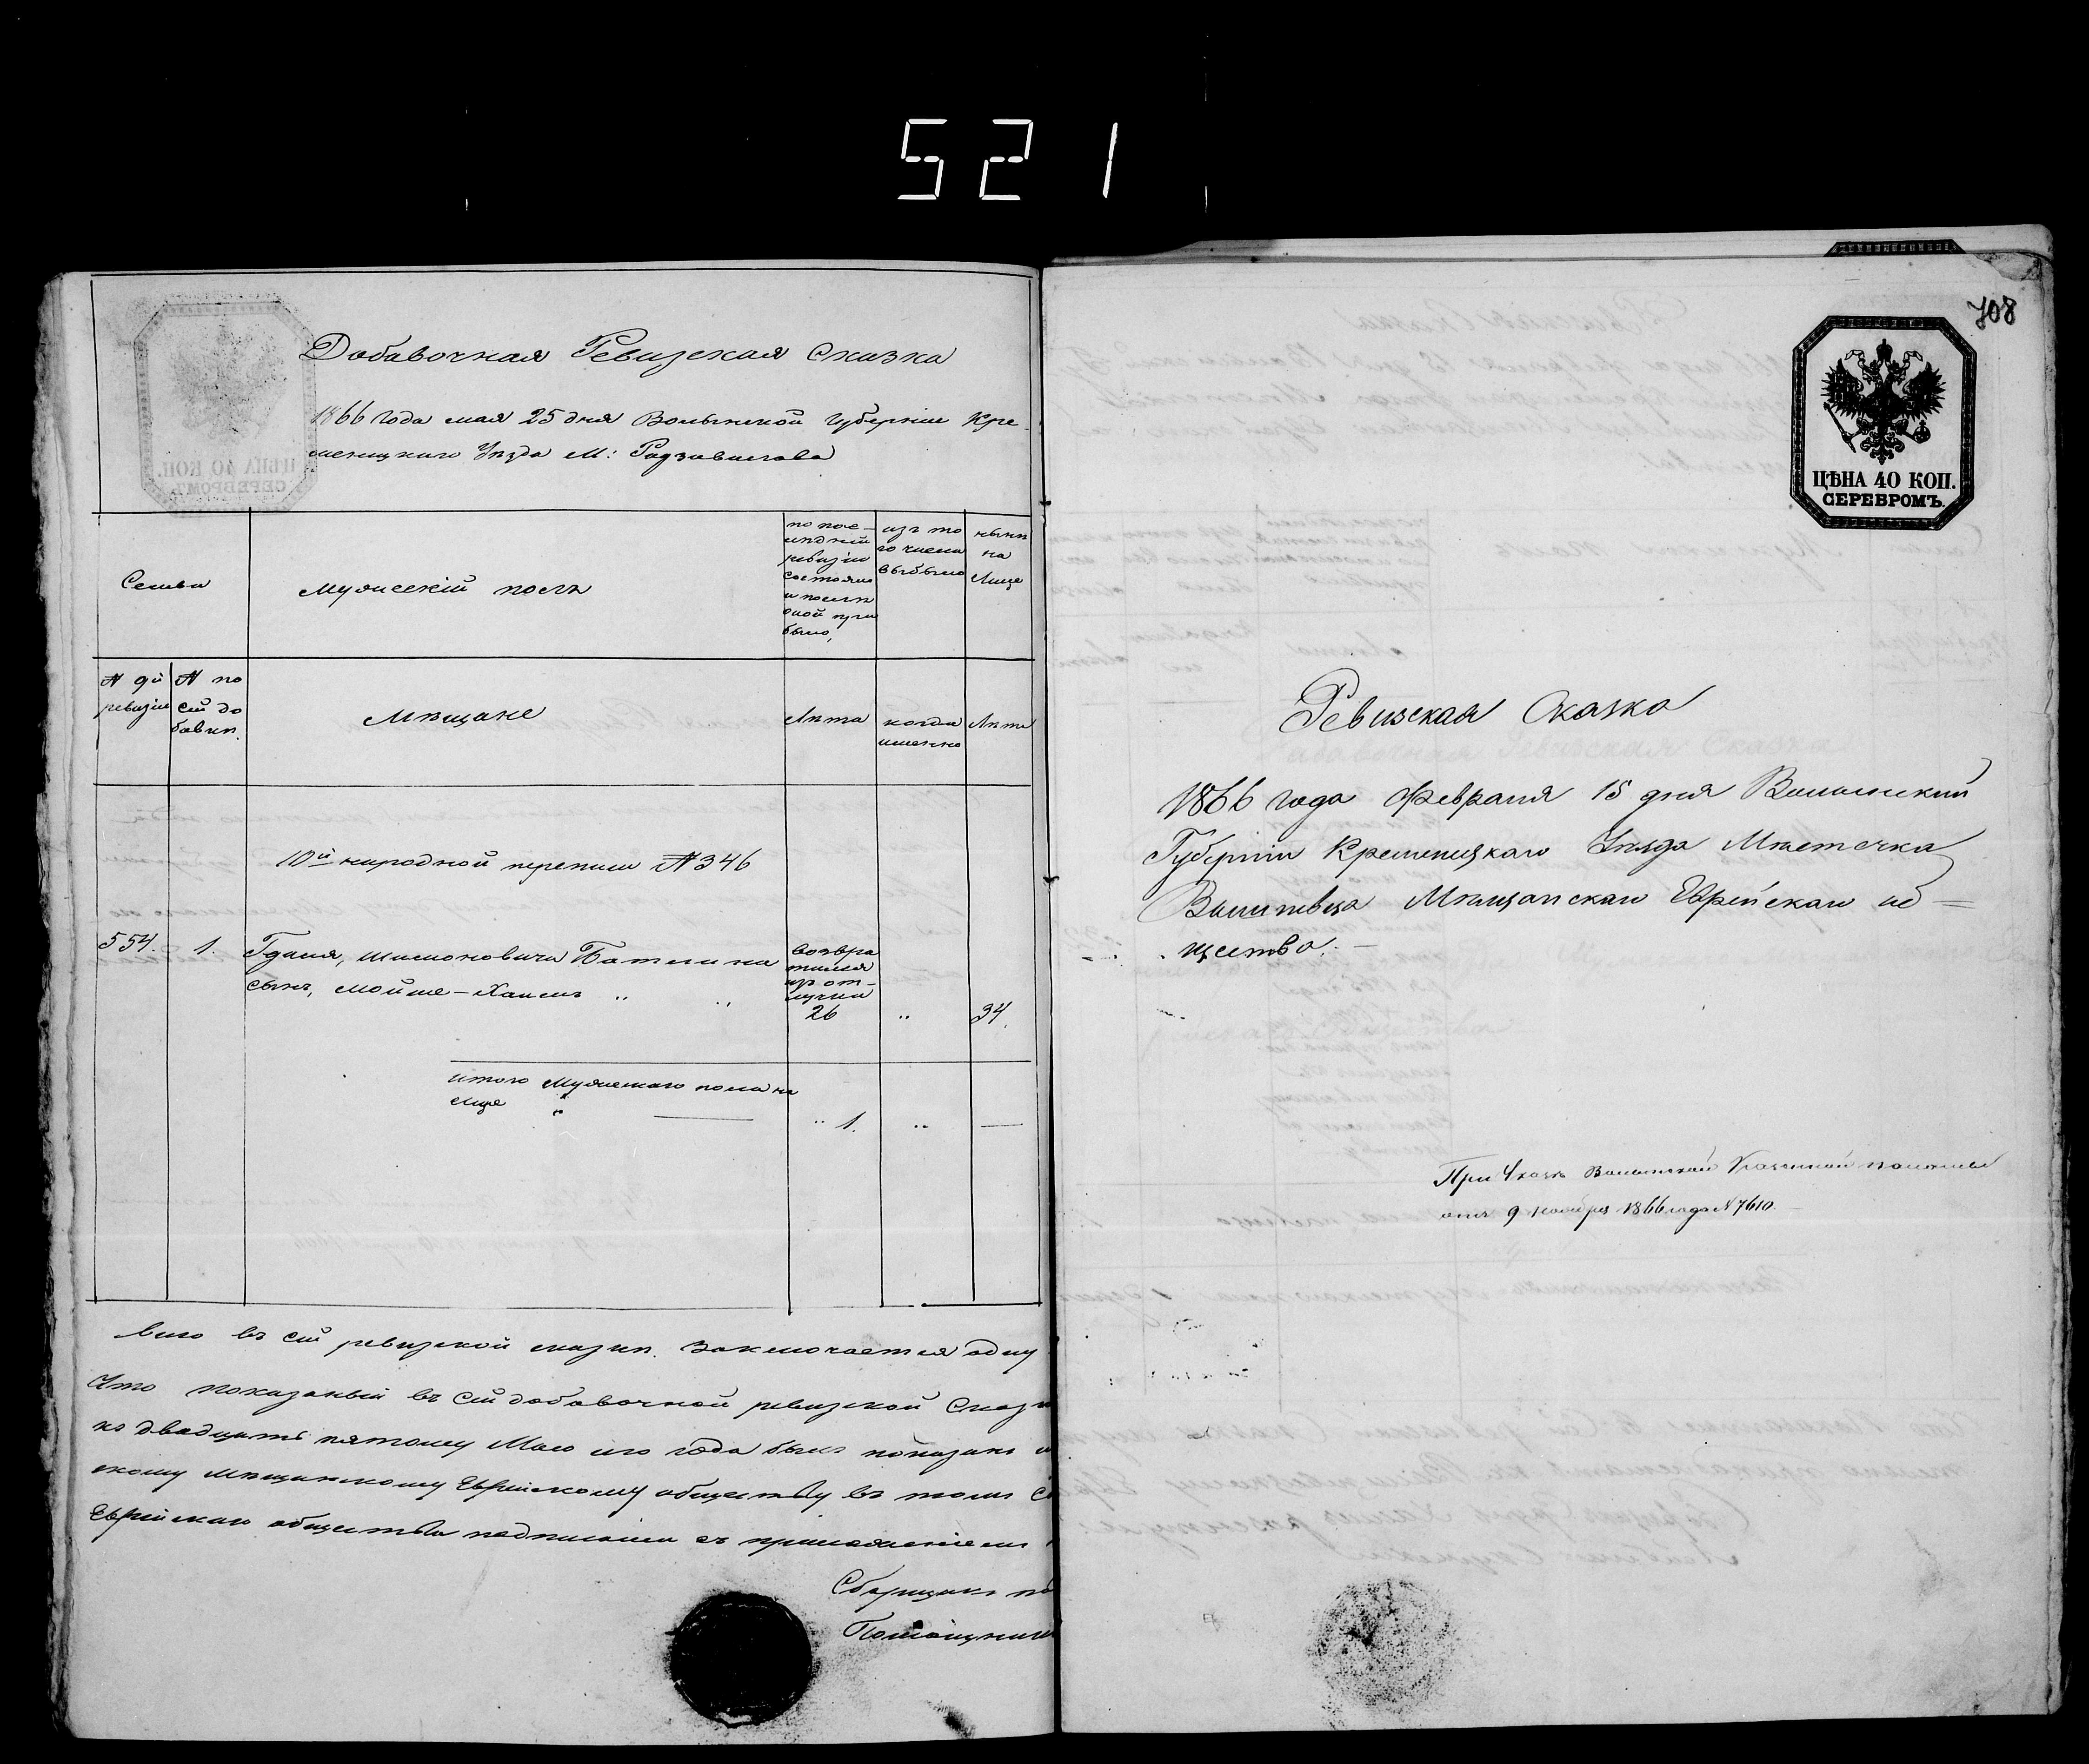 521
Добавочная Ревизская Сказка
1866 года мая 25 дня Волынской Губернии Кре-
менецкого Уезда М: Радзивилова
ЦѢНА 40 КОП.
СЕРЕБРОМЪ.
Семьи
Мужескій полъ
по пос-
лѣдней
ревизіи
состояло
и послѣ
оной при
было,
изъ то
го числа
выбыло
нынѣ
на
Лице
№ 9й
ревизіи
№ по
сей до
бавкѣ.
Мѣщане
Лѣта
когда
именно
Лѣта
10й народной переписи №346
554. 1. Гдаля, Шимоновича Бательна
сынъ, Мойше-Хаимъ " "
возвра
тился
изъ от-
лучки
26 " 34.
итого Мужескаго пола на
лице " — " 1. " —
Всего въ сей ревизской сказкѣ. Заключается одну
Что показаный въ сей добавочной ревизской Сказк
ко двадцать пятому Маю сего года былъ показанъ
скому мѣщанскому Еврейскому обществу въ томъ
Еврейскаго общества подписами съ приложеніемъ
Сборщикъ по
Помощники
708
ЦѢНА 40 КОП.
СЕРЕБРОМЪ.
Ревизская Сказка
1866 года Февраля 15 дня Волынский
Губерніи Кременецкаго Уѣзда Мѣстечка
Вышневца Мѣщанскаго Еврейскаго об=
щества. —
При Указѣ Волынской Казенной палаты
отъ 9 Ноября 1866 года №7610. —